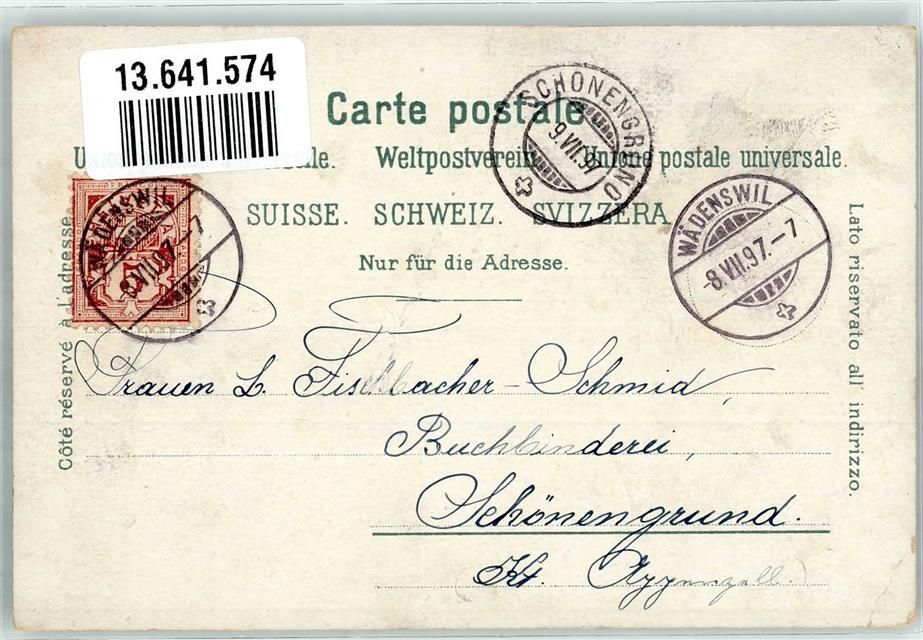 13.641.574
Carte postale
Weltpostverein. Unione postale universale.
SUISSE. SCHWEIZ. SVIZZERA.
Nur für die Adresse.
Côté réservé à l'adresse.
Lato riservato all' indirizzo.
SCHÖNENGRUND
9.VII.97
WÄDENSWIL
8.VII.97.-7
WÄDENSWIL
-8.VII.97.-7
Frauen L. Fischbacher-Schmid,
Buchbinderei,
Schönengrund.
Kt. Appenzell.